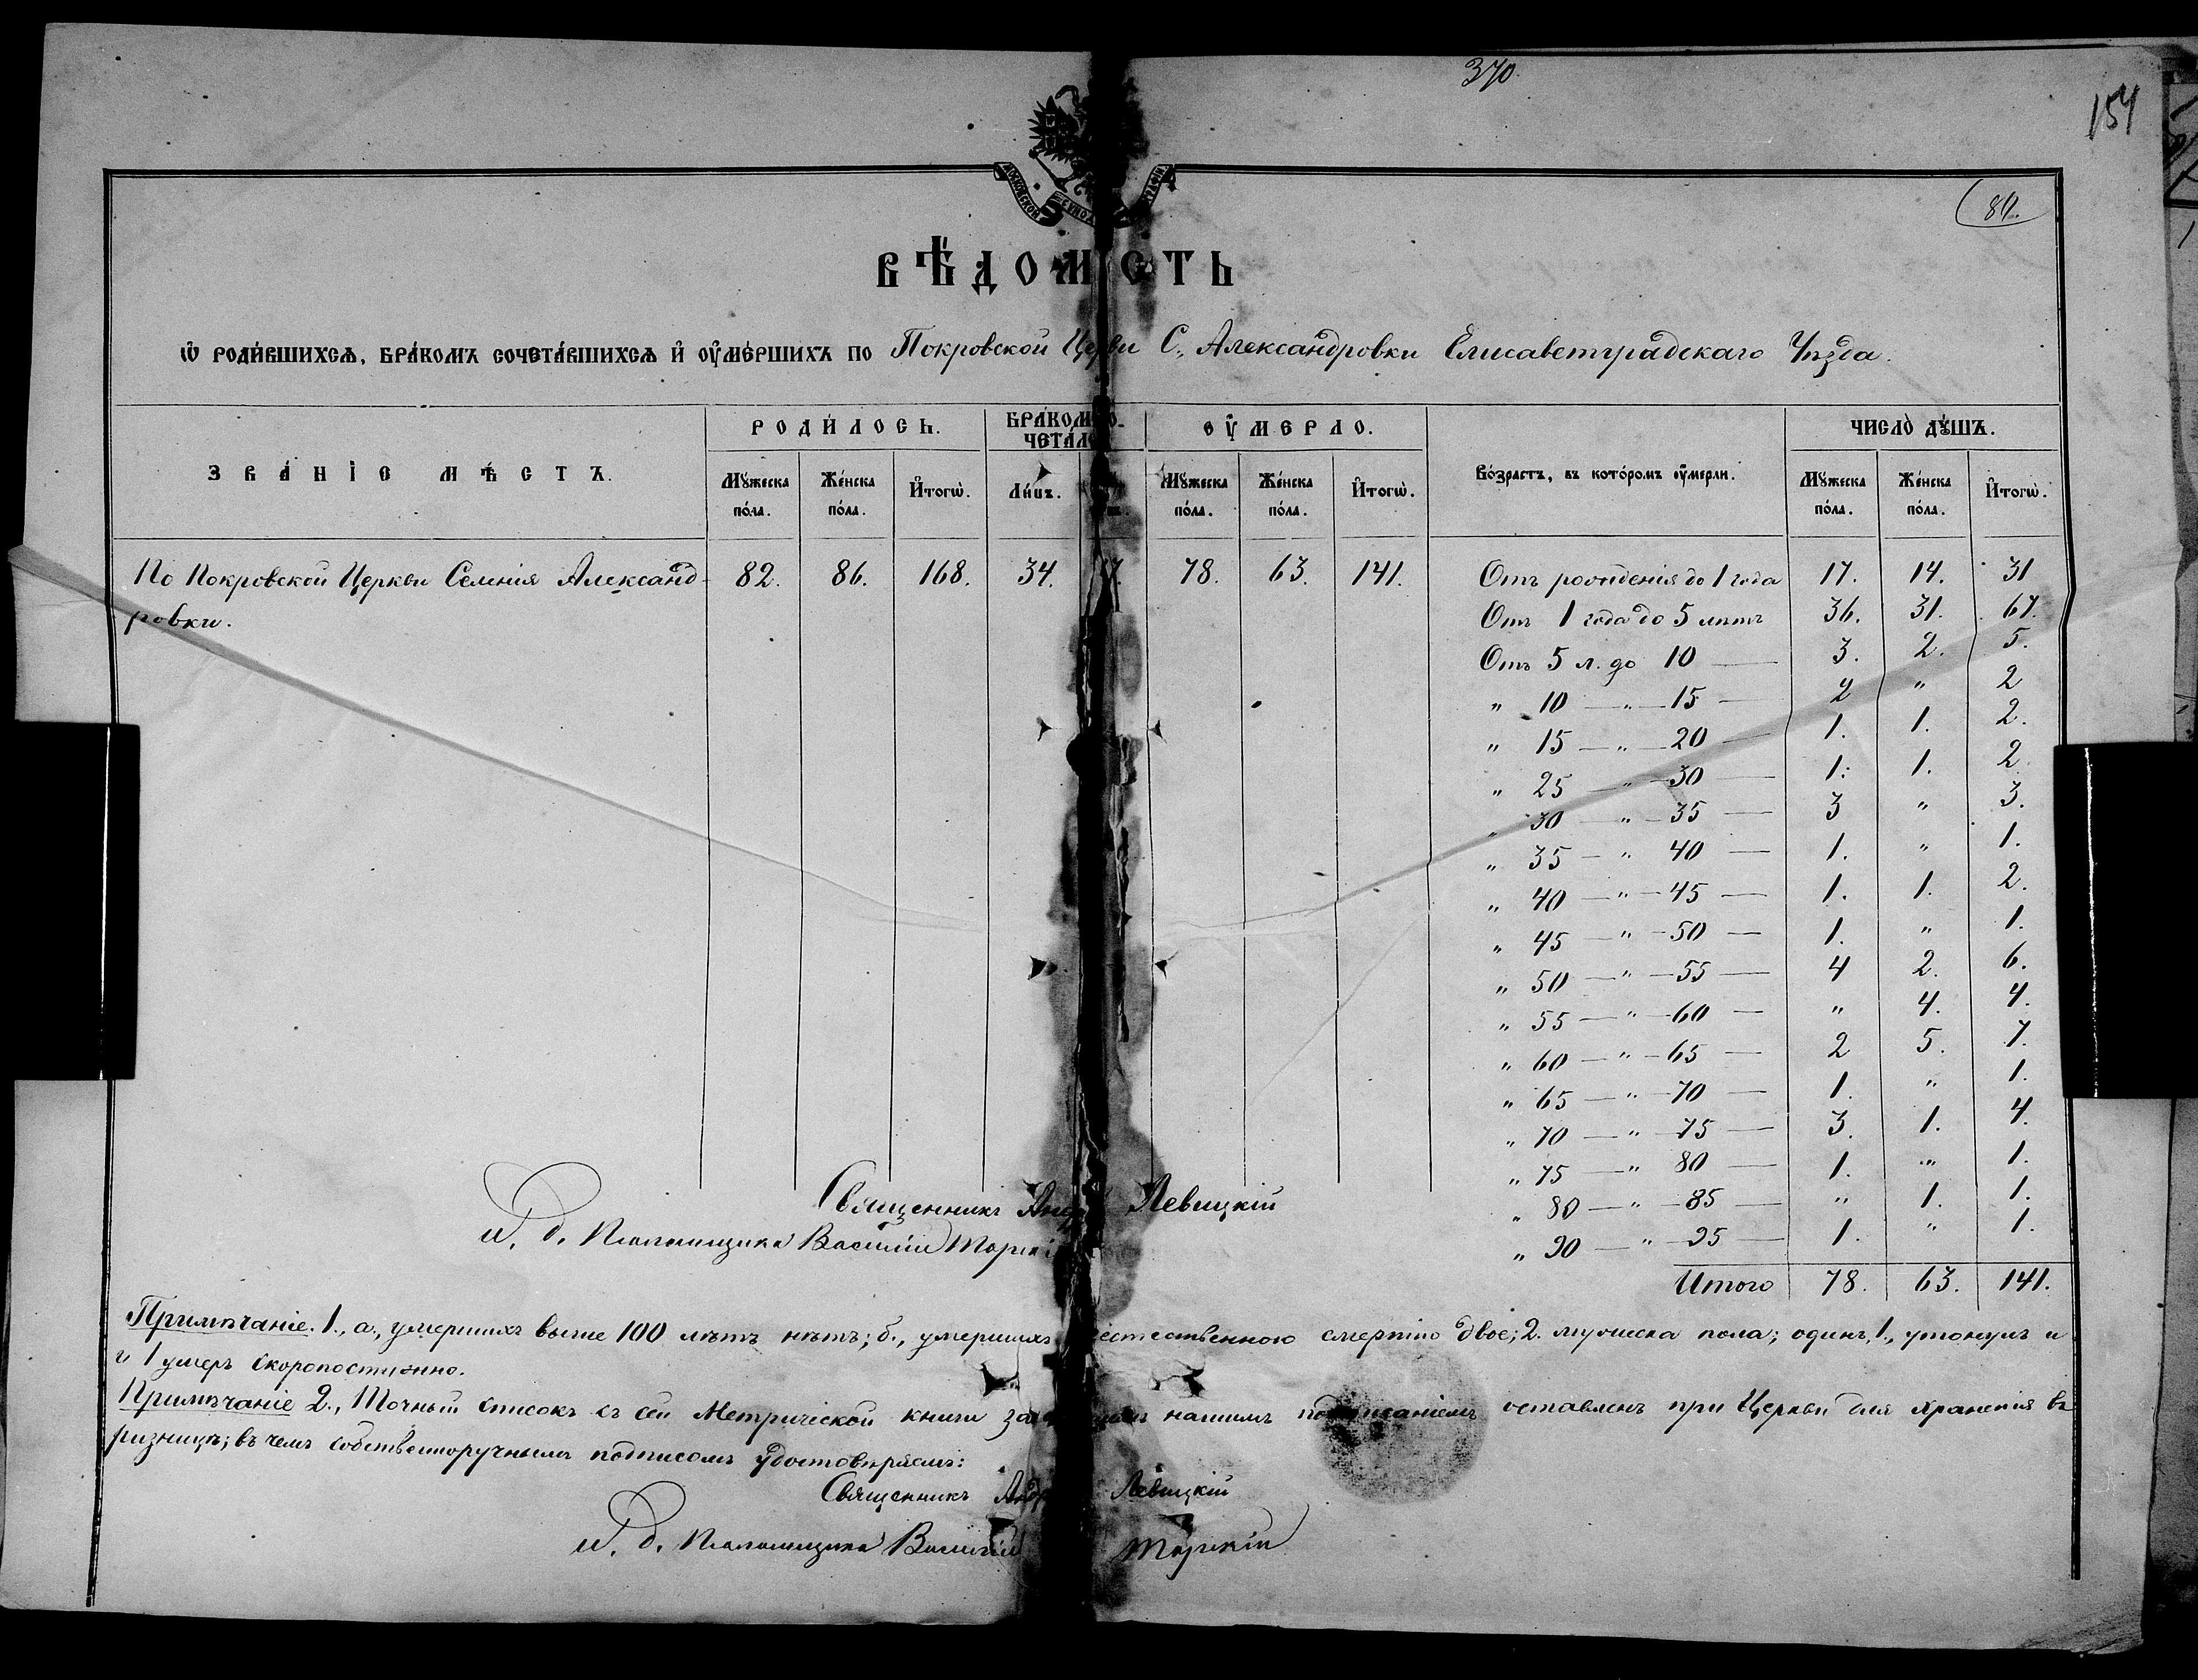 370.
154
84.
ВѢДОМОСТЬ
Ѡ РОДИВШИХСѦ, БРАКОМЪ СОЧЕТАВШИХСѦ И ОУМЕРШИХЪ ПО Покровской Церкви С., Александровки Елисаветградскаго Уѣзда.
ЗВАНІЕ МѢСТЪ.
РОДИЛОСЬ.
БРАКОМЪ СО-
ЧЕТАЛО
ОУМЕРЛО.
Возрастъ, въ которомъ оумерли.
ЧИСЛО ДУШЪ.
Мужеска пола. Женска пола. Итогѡ. Лицъ. Мужеска пола. Женска пола. Итогѡ. Мужеска пола. Женска пола. Итогѡ.
По Покровской Церкви Селенія Александ- 82. 86. 168. 34. 17. 78. 63. 141. Отъ рожденія до 1 года 17. 14. 31
ровки.
Отъ 1 года до 5 лѣтъ 36. 31. 67.
Отъ 5 л. до 10 — 3. 2. 5.
" 10 — " — 15 — 2 " 2
" 15 — " — 20 — 1. 1. 2.
" 25 — " — 30 — 1. 1. 2
" 30 — " — 35 — 3 " 3.
" 35 — " 40 — 1. " 1.
" 40 — " — 45 — 1. 1. 2.
" 45 — " — 50 — 1. " 1.
" 50 — " — 55 — 4 2. 6.
" 55 — " — 60 — " 4. 4.
" 60 — " — 65 — 2 5. 7.
" 65 — " — 70 — 1. " 1.
" 70 — " — 75 — 3. 1. 4.
" 75 — " 80 — 1. " 1.
" 80 — " — 85 — " 1. 1.
" 90 — " — 95 — 1. " 1.
Итого 78. 63. 141.
Священникъ Левицкій
и. д. Псаломщика Василій
Примѣчаніе. 1., а., умершихъ выше 100 лѣтъ нѣтъ; б., умершихъ естественною смертію двое; 2. мужеска пола; одинъ, 1., утонулъ и
и 1 умеръ скоропостижно.
Примѣчаніе 2., Точный списокъ съ сей Метрической книги за нашимъ подписаніемъ оставленъ при Церкви для храненія въ
ризницѣ; въ чемъ собственноручнымъ подписомъ удостовѣряемъ:
Священникъ Левицкій
и. д. Псаломщика Василій